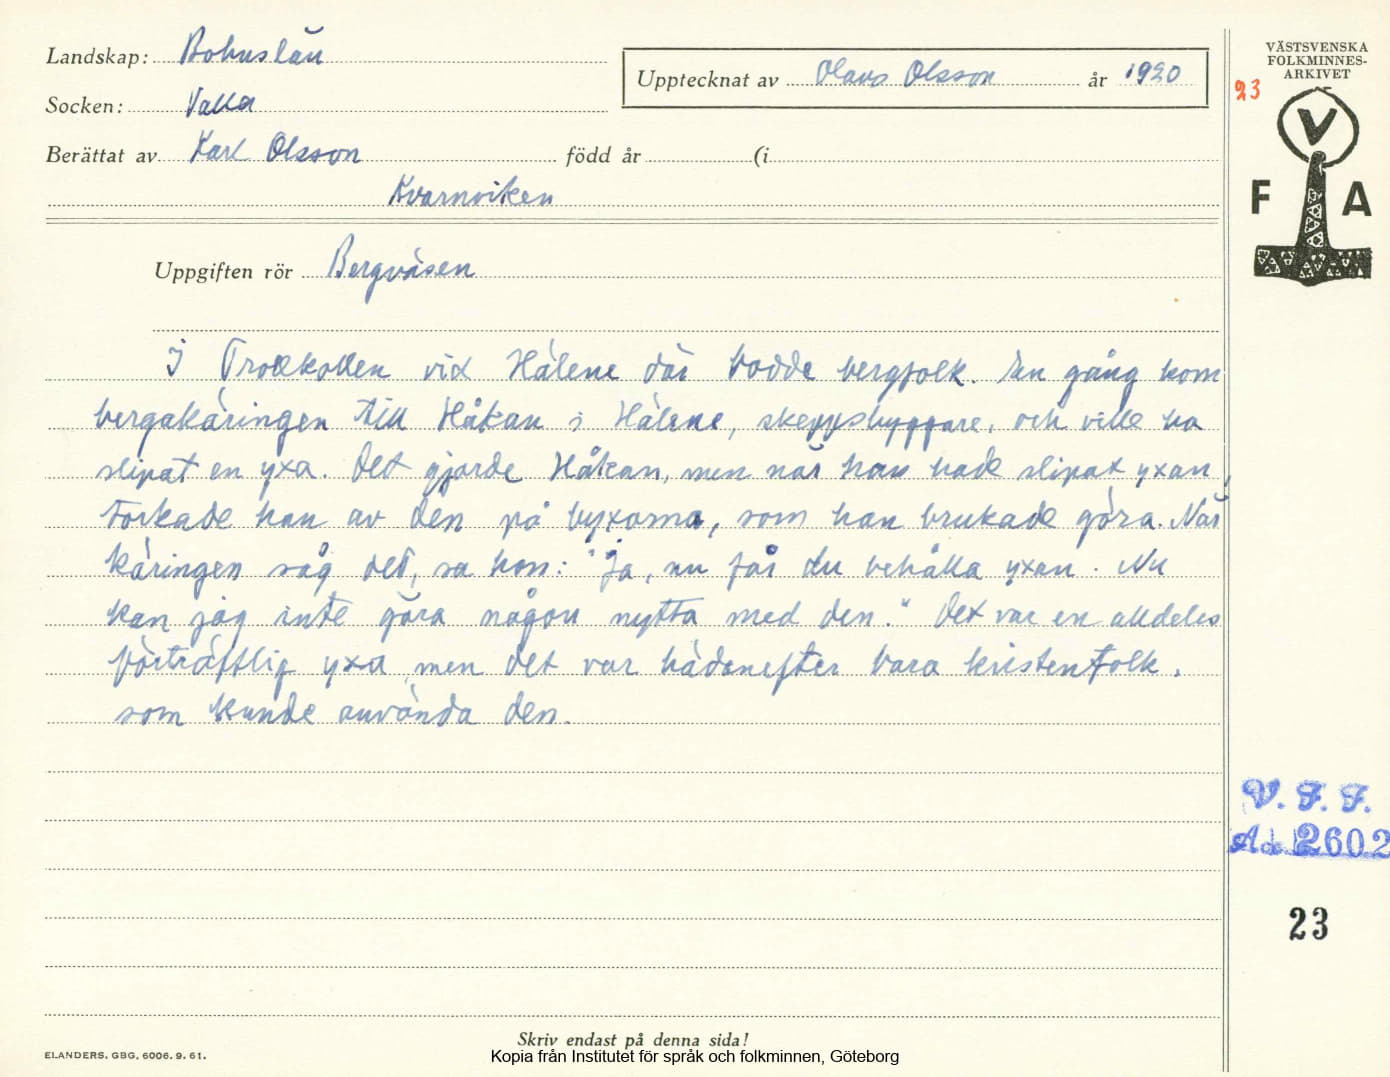 Landskap: Bohuslän
Socken: Valla
Berättat av Karl Olsson född år (i
Kvarnviken
Upptecknat av Olavs Olsson år 1920
Uppgiften rör Bergväsen
I Trollkollen vid Hälene där bodde bergfolk. En gång kom
bergakäringen till Håkan i Hälene, skeppsbyggare, och ville ha
slipat en yxa. Det gjorde Håkan, men när han hade slipat yxan,
torkade han av den på byxorna, som han brukade göra. När
käringen såg det, sa hon: "Ja, nu får du behålla yxan. Nu
kan jag inte göra någon nytta med den." Det var en alldeles
förträfflig yxa, men det var hädanefter bara kristenfolk,
som kunde använda den.
VÄSTSVENSKA
FOLKMINNES-
ARKIVET
23
V
F A
V. F. F.
2602
23
Skriv endast på denna sida!
ELANDERS. GBG. 6006. 9. 61.
Kopia från Institutet för språk och folkminnen, Göteborg